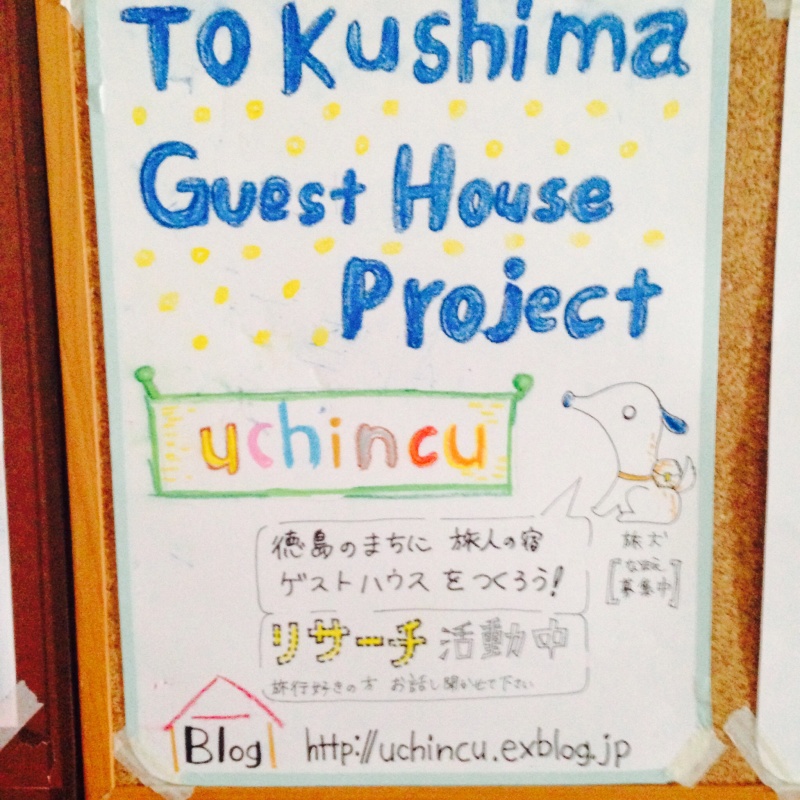 Tokushima
Guest House
Project
uchincu
徳島のまちに 旅人の宿
ゲストハウス をつくろう!
旅犬
[なまえ
募集中]
リサーチ 活動中
旅行好きの方 お話し聞かせて下さい
Blog http://uchincu.exblog.jp